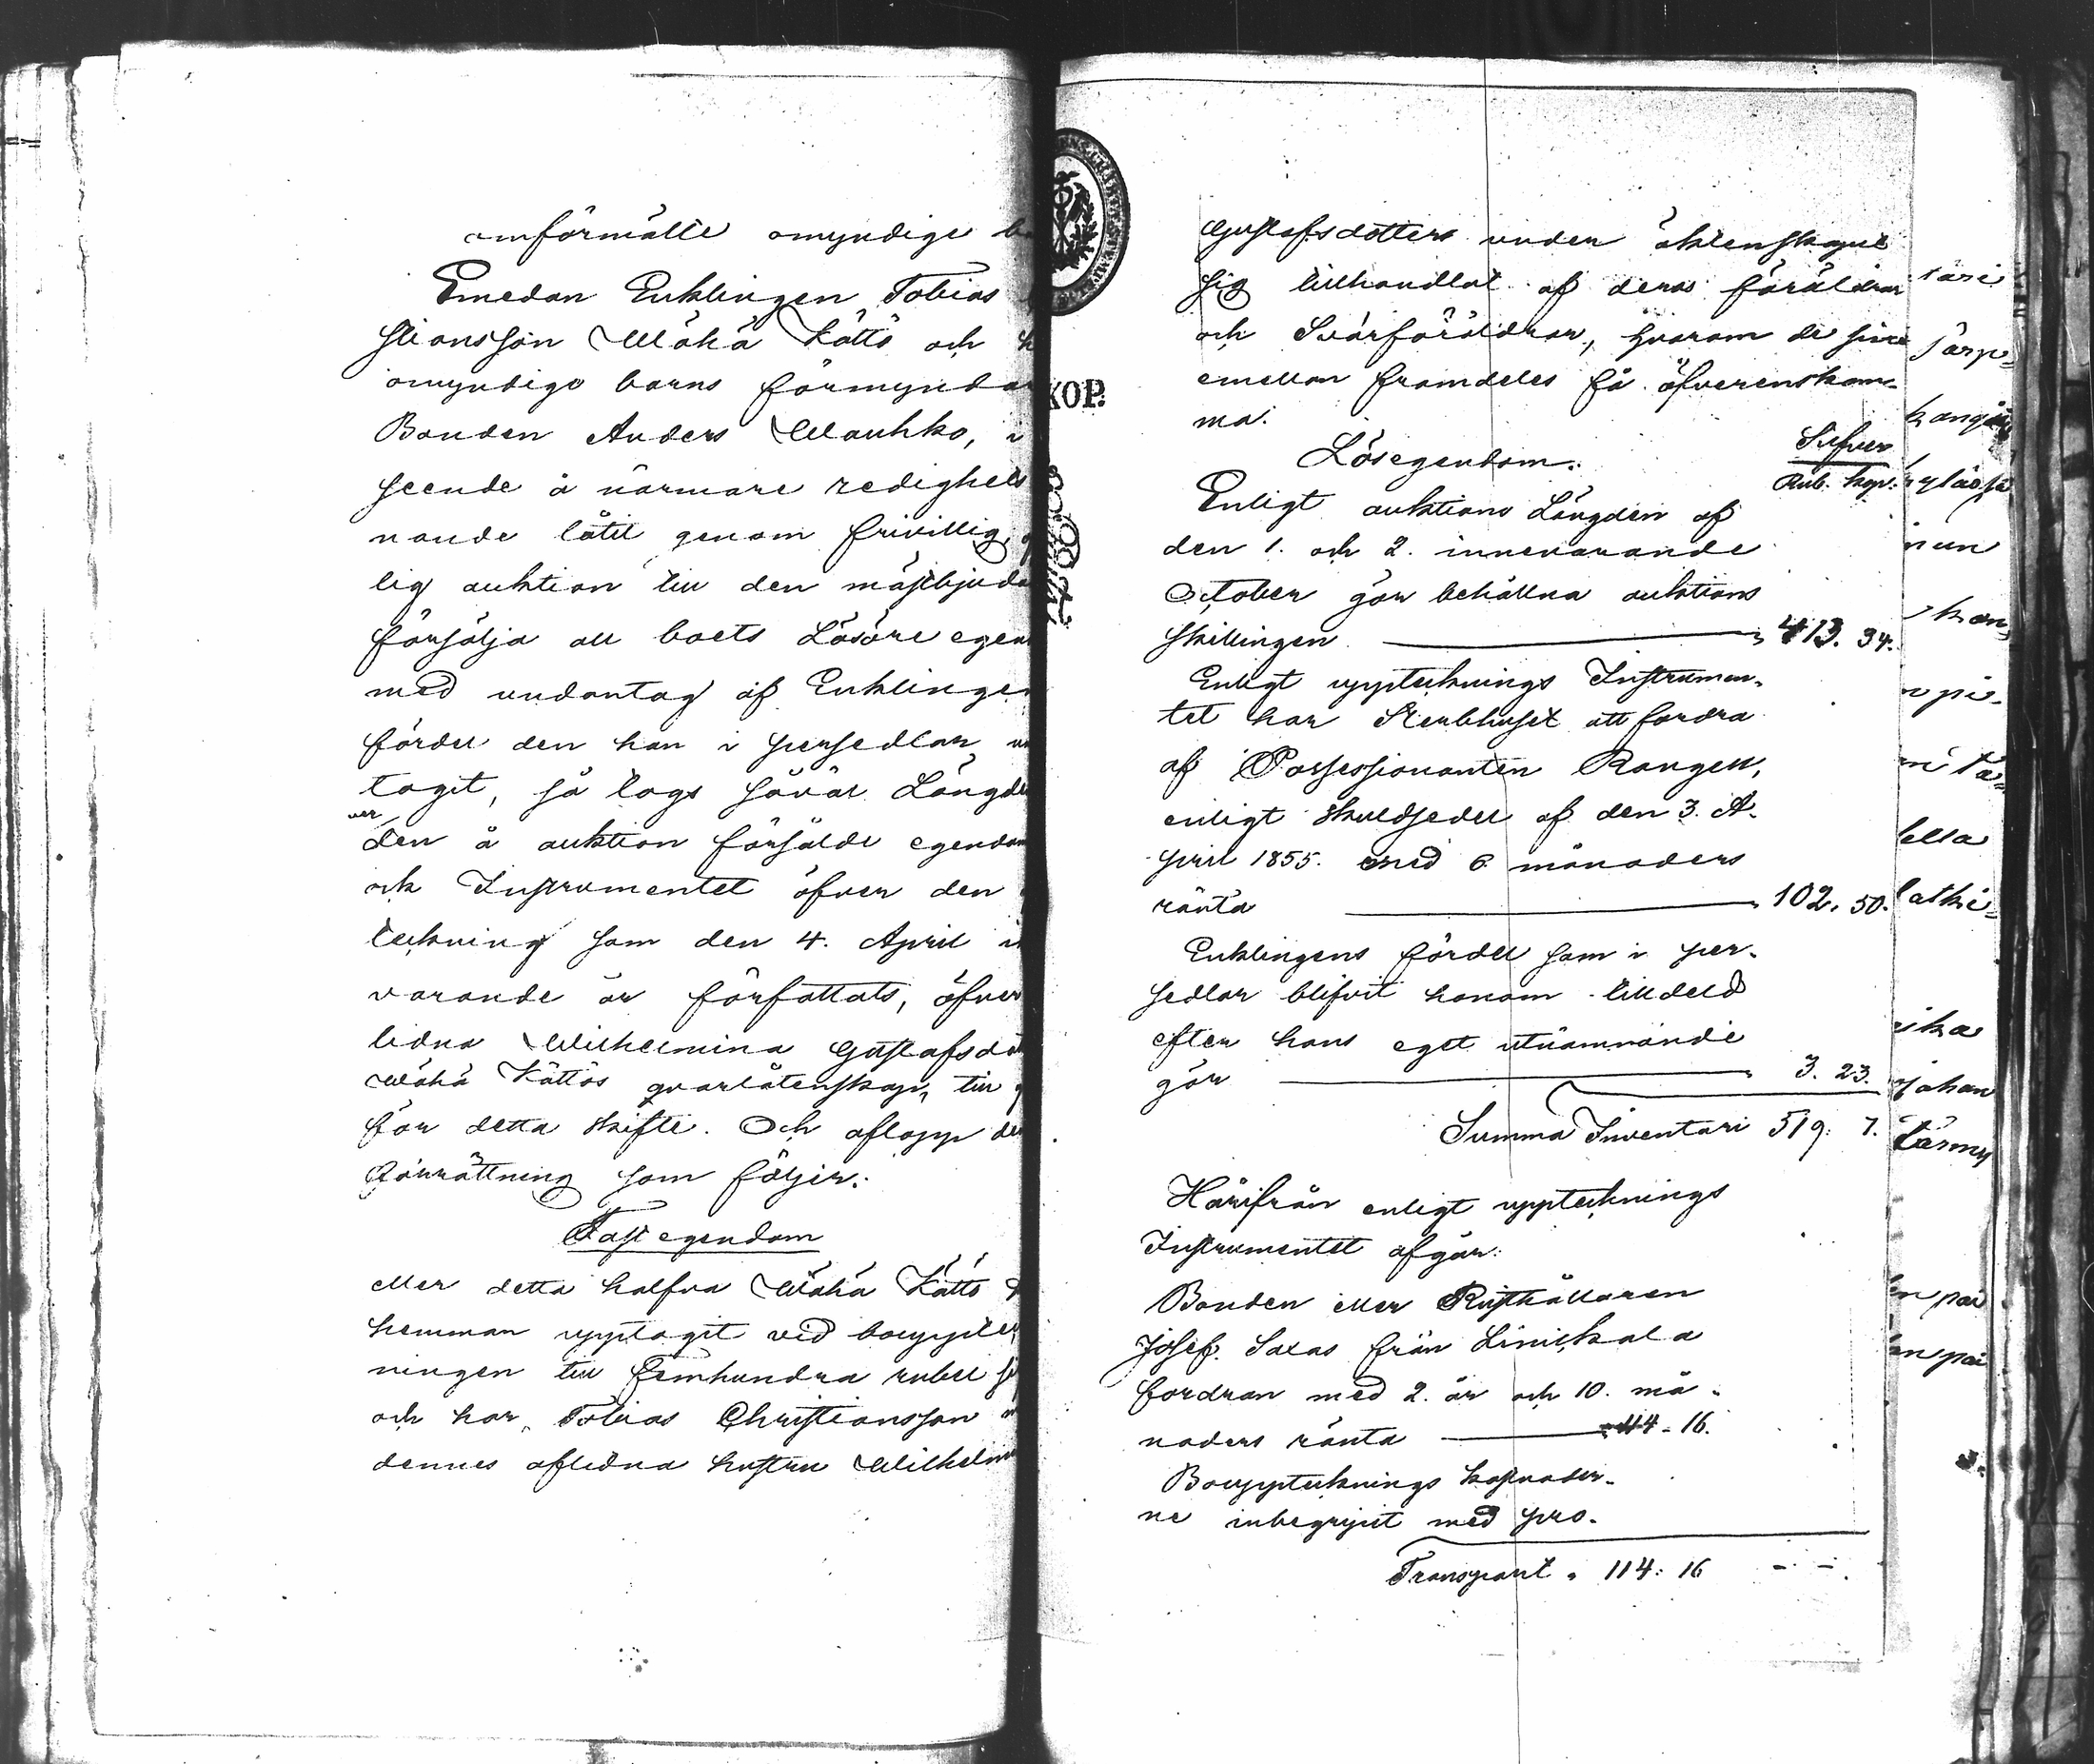 omförmälte omyndige b
Emedan Enklingen Tobias
stiansson Wähä Kättö och h
omyndige barns förmynda
Bonden Anders Wauhko, i
seende å närmare redighets
nande låtit genom frivillig, o
lig auktion till den mästbjuda
försälja all boets Lösöre egen
med undantag af Enklinge
fördel den han i persedlar u
tagit, så togs såväl Längde
ver
den å auktion försålde egendom
och Instrumentet öfver den
teckning som den 4. April i
varande år författats, öfver
lidna Wilhelmina Gustafsdot
Wähä Kättös qvarlåtenskap, till g
för detta skifte. Och aflopp de
Förrättning som följer:
Fast egendom
eller detta halfva Wähä Kättö
hemman upptagit vid bouppteck
ningen till femhundra rubel si
och har Tobias Christiansson
dennes aflidna hustru Wilhelm
KOP.
Gustafsdotter under äktenskapet
sig tillhandlat af deras föräldrar
och Svärföräldrar, hvarom de sine
emellan framdeles få öfverenskom-
ma.
Silfver
Lösegendom.
Rub. kop.
Enligt auktions Längden af
den 1. och 2. innevarande
October gör behållna auktions
skillingen 413. 34.
Enligt upptecknings Instrumen-
tet har Sterbhuset att fordra
af Possessionanten Rangell,
enligt skuldsedel af den 3. A-
pril 1855. med 6 månaders
ränta 102. 50.
Enklingens fördel som i per-
sedlar blifvit honom tilldeld
efter hans eget utnämnande
gör 3. 23.
Summa Inventari 519: 7.
Härifrån enligt upptecknings
Instrumentet afgår:
Bonden eller Rusthållaren
Josef Saxas från Liniskala
fordran med 2. år och 10. må-
naders ränta 114. 16.
Bouppteknings kostnader-
ne inbegripit med pro-
Transport 114: 16 - -
täri
järje
nun
lella
ika
johan